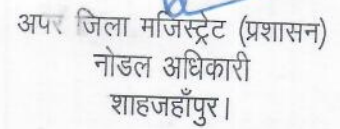 अपर जिला मजिस्ट्रेट (प्रशासन)
नोडल अधिकारी
शाहजहाँपुर।